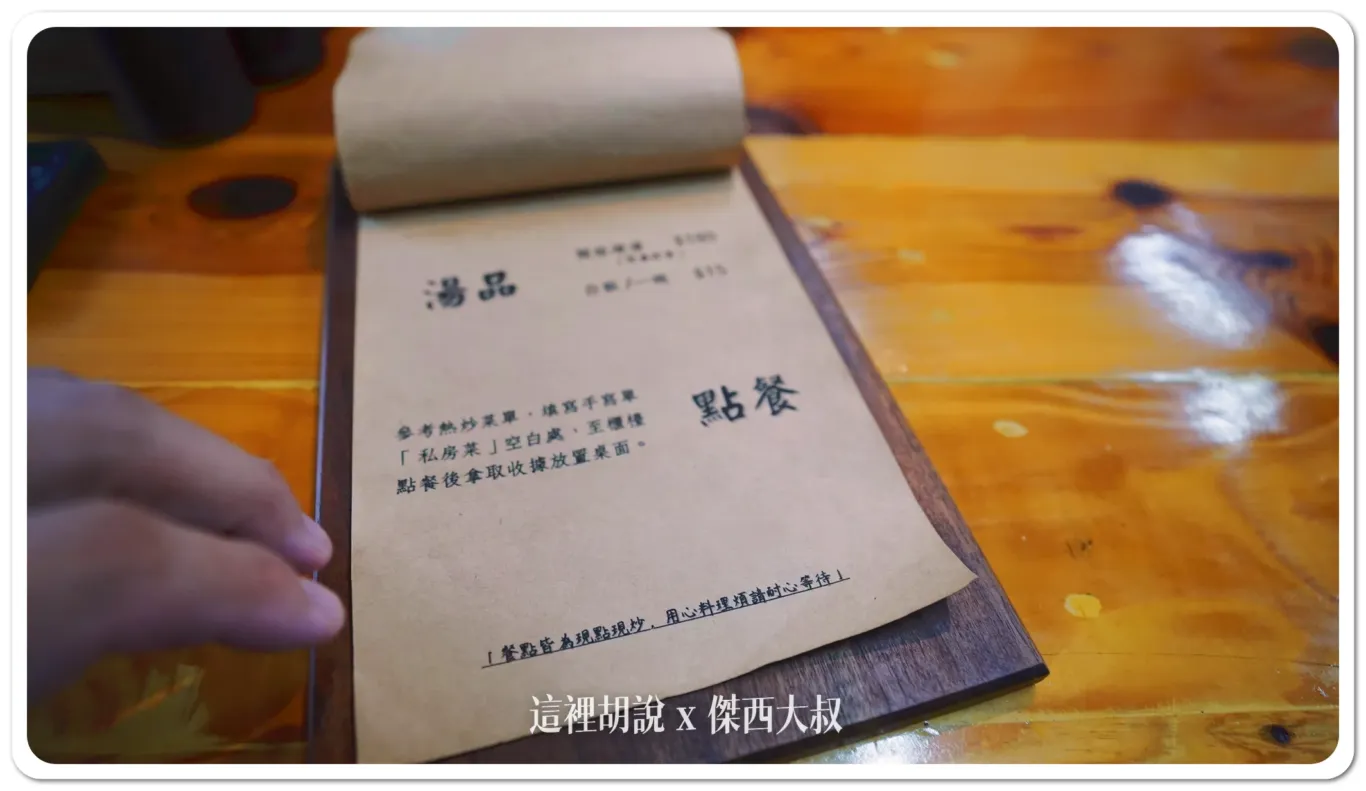 湯品
$15
點餐
參考熱炒菜單，填寫手寫單
「私房菜」空白處，至櫃檯
點餐後拿取收據放置桌面。
「餐點皆為現點現炒，用心料理煩請耐心等待」
這裡胡說 x 傑西大叔